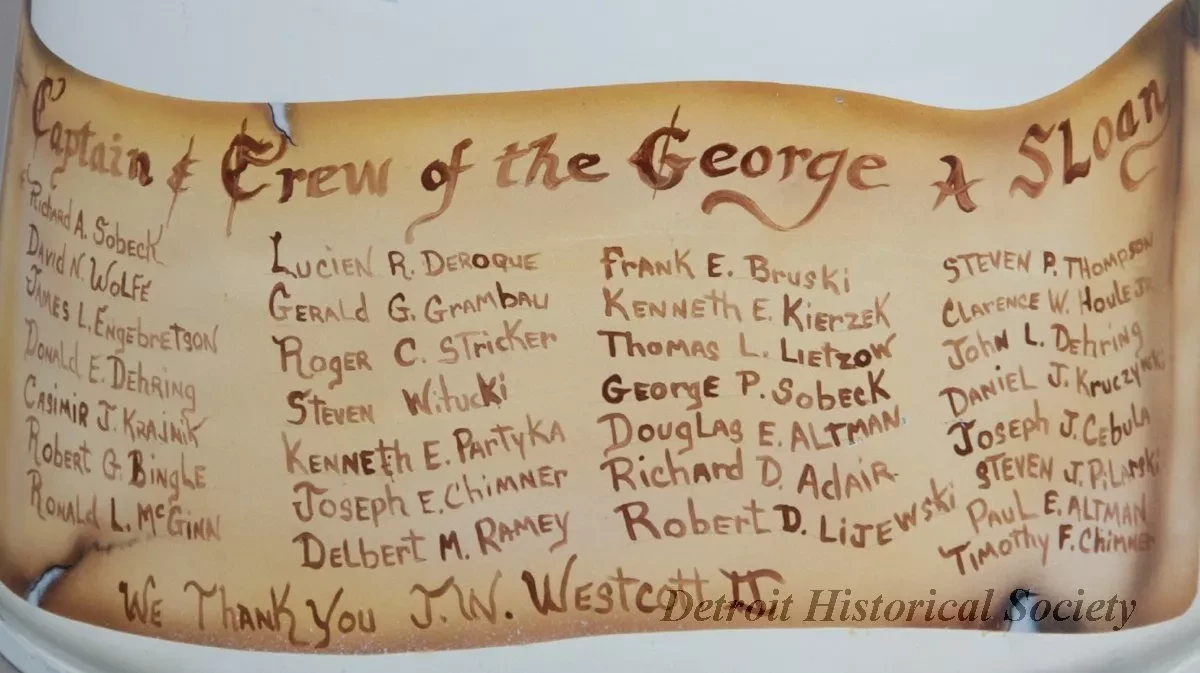 Captain & Crew of the George A Sloan
Richard A. Sobeck
David N. Wolfe
James L. Engebretson
Donald E. Dehring
Casimir J. Krajnik
Robert G. Bingle
Ronald L. McGinn
Lucien R. Deroque
Gerald G. Grambau
Roger C. Stricker
Steven Witucki
Kenneth E. Partyka
Joseph E. Chimner
Delbert M. Ramey
Frank E. Bruski
Kenneth E. Kierzek
Thomas L. Lietzow
George P. Sobeck
Douglas E. Altman
Richard D. Adair
Robert D. Lijewski
Steven P. Thompson
Clarence W. Houle Jr.
John L. Dehring
Daniel J. Kruczynski
Joseph J. Cebula
Steven J. Pilarski
Paul E. Altman
Timothy F. Chimner
We Thank You J.W. Westcott II
Detroit Historical Society